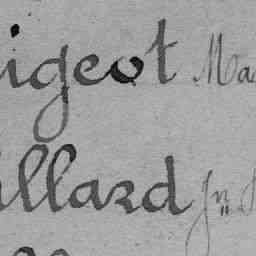 igeot Ma
llard Jn